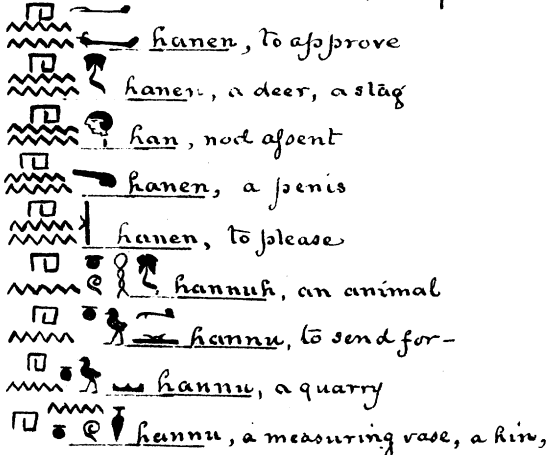 hanen, to approve
hanen, a deer, a stag
han, nod aſsent
hanen, a penis
hanen, to please
hannuh, an animal
hannu, to send for-
hannu, a quarry
hannu, a measuring vase, a hin,